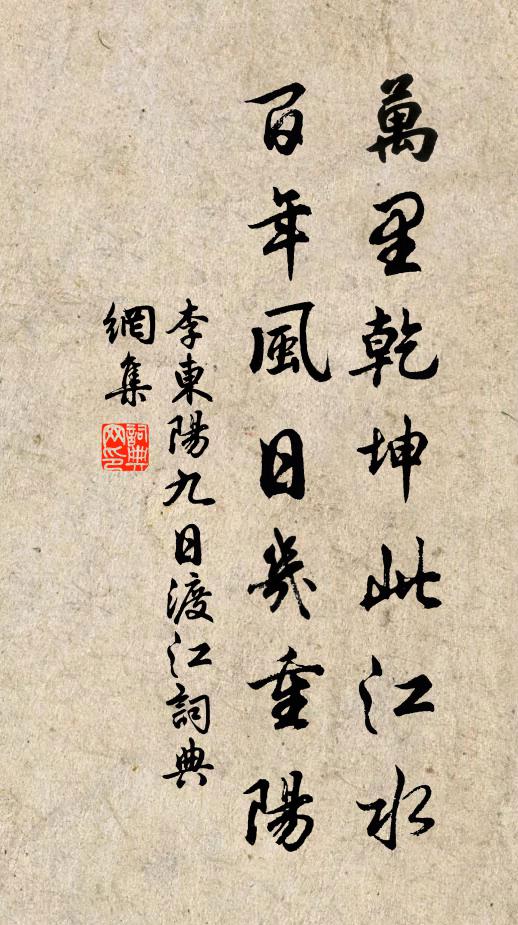 萬里乾坤此江水
百年風日幾重陽
李東陽九日渡江詞典
網集
詞典
网印